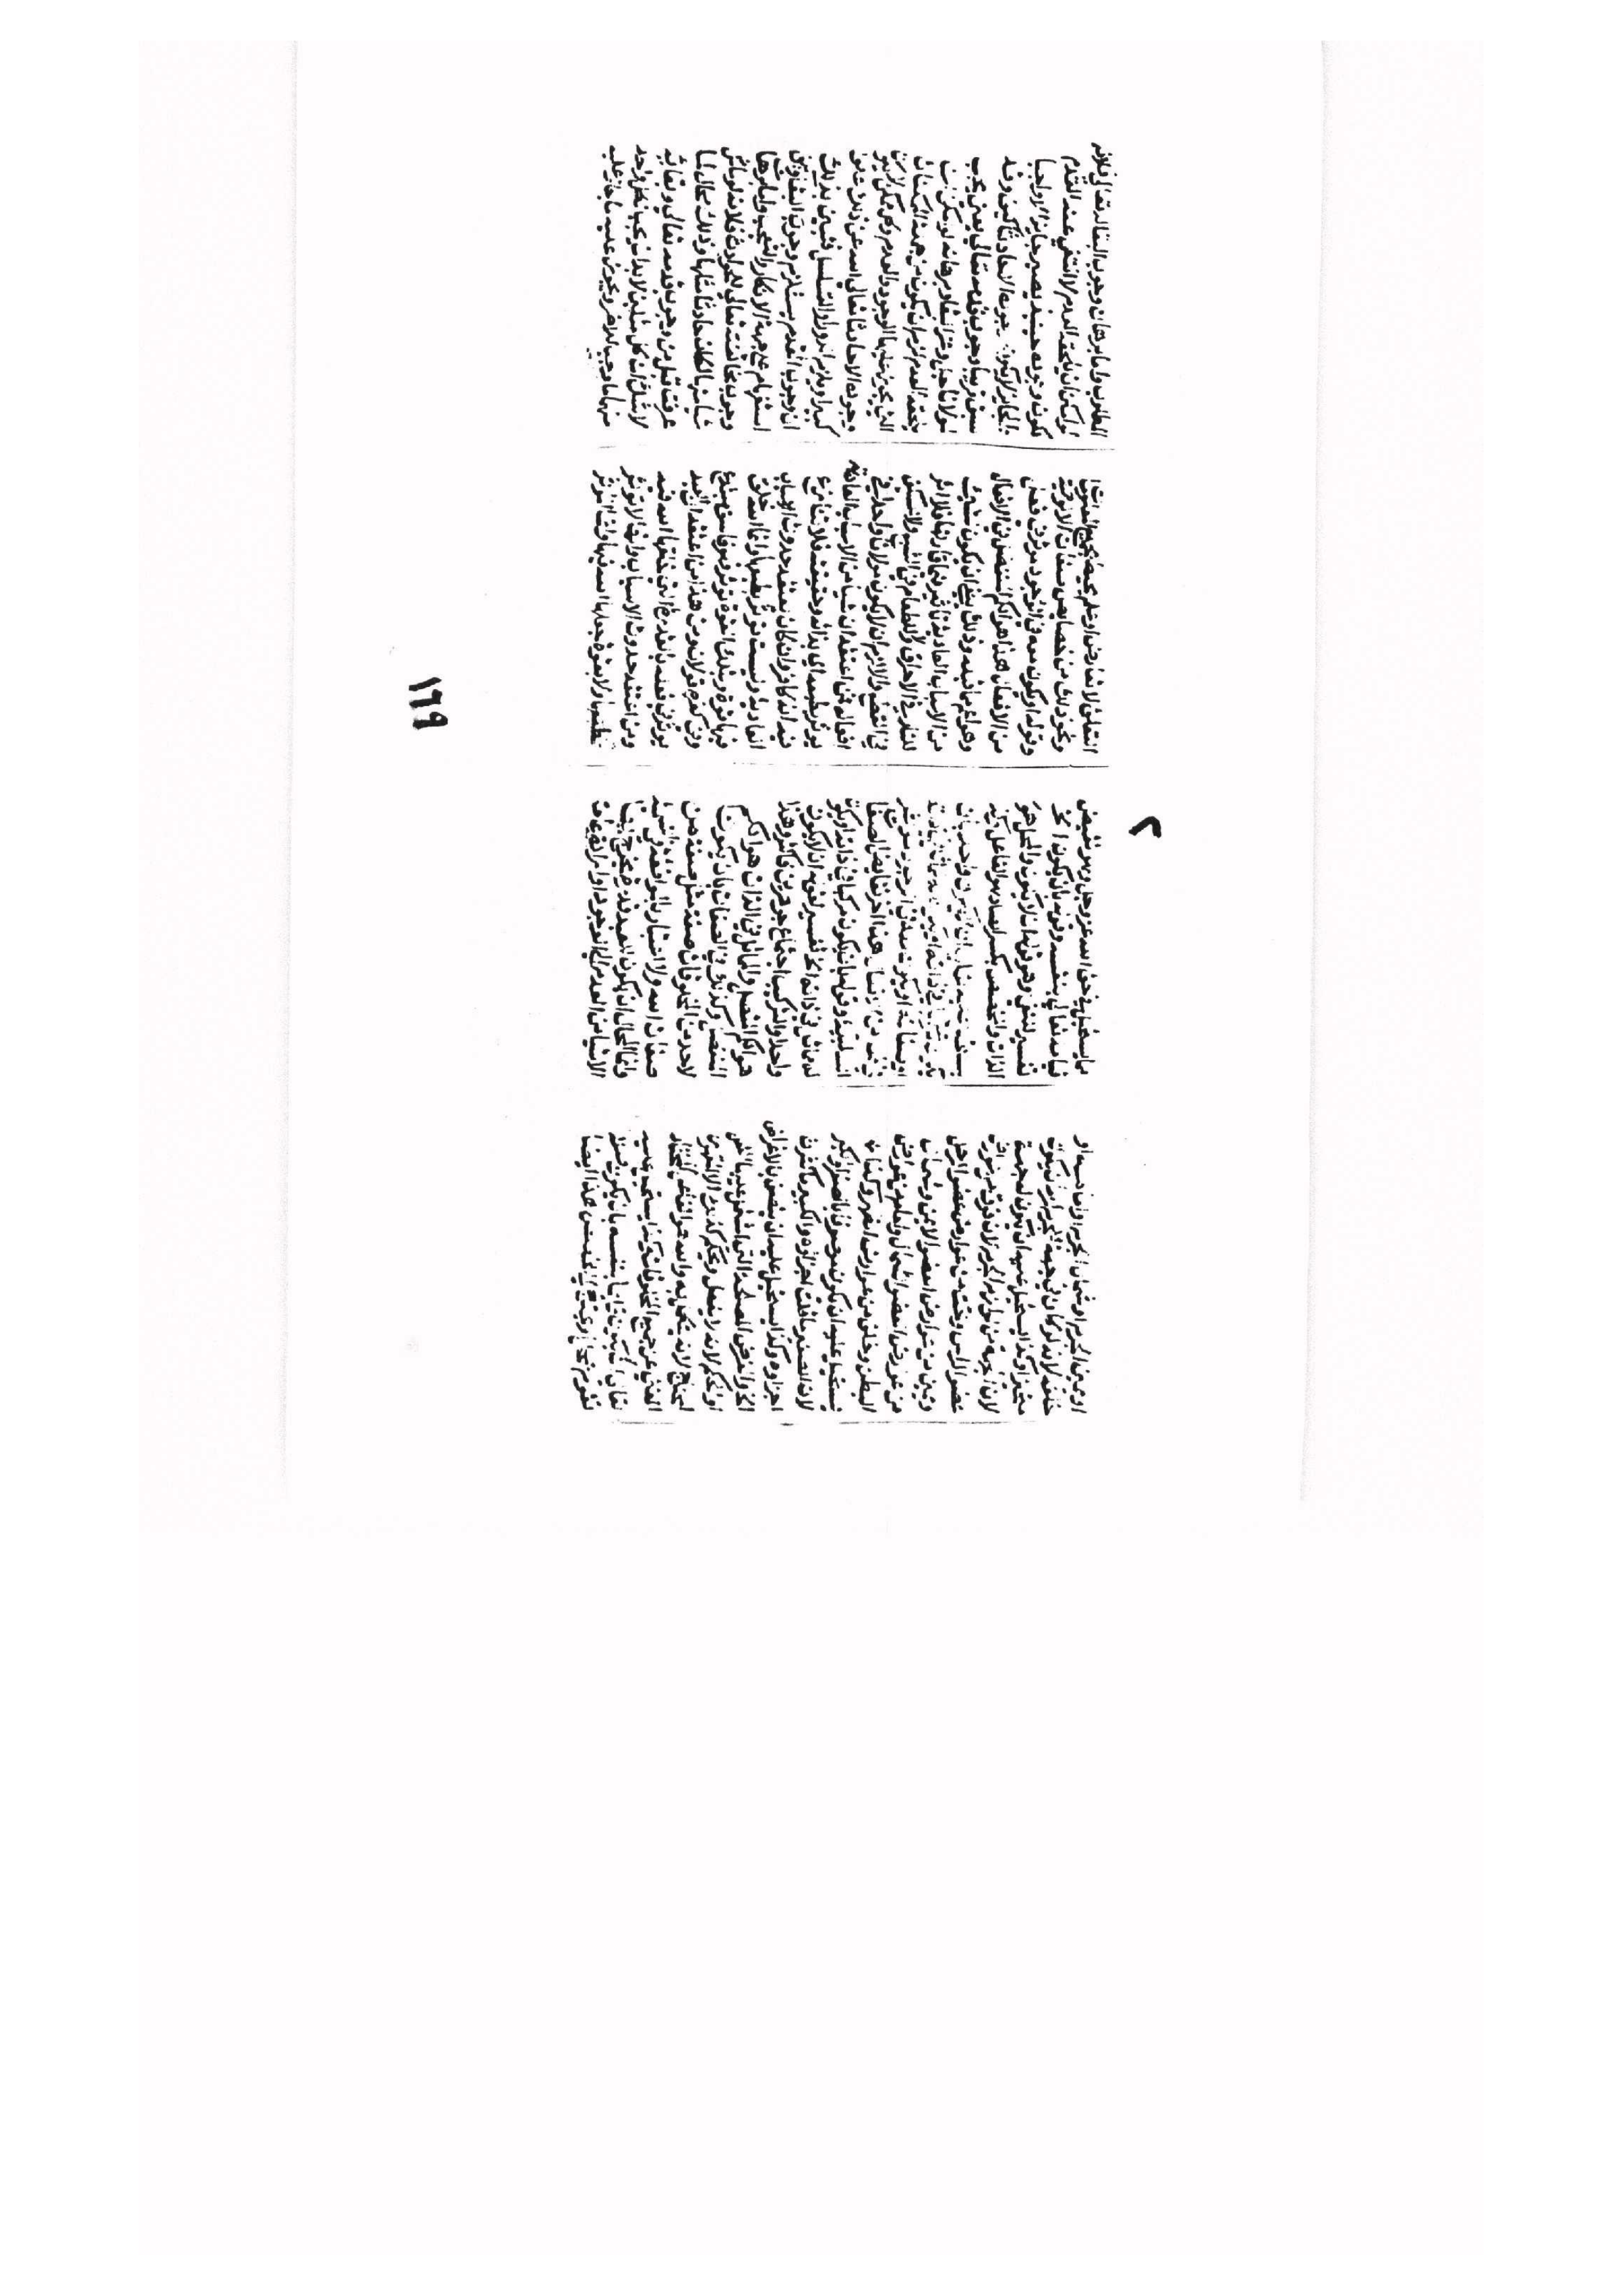 ٢
او يمين الجرم او شمال الجرم او امامه او
خلفه لانه لو كان في جهة الجرم لزم ان يكون
متحيزا وكذا يستحيل عليه ان تكون له جهة
لان الجهة من لوازم الجرم لان فوق من عوارض
عضو الراس وتحت من عوارض عضو الرجل
ويمين من عوارض العضو الايمن وشمال
من عوارض العضو الشمال وامام من عوارض
البطن وخلف من عوارض الظهر وكذلك
يستحيل عليه ان يكون موصوفا بالصغر والكبر
لان الصغير ما قلت اجزاوه والكبير ما كثرت
اجزاوه وكذا يستحيل عليه ان يتصف بالاغراض
الخ والغرض المصلحة التي تشتمل عليها
او الحكم لانه لا يفعل ويحكم كذلك الا
لانه يتكمل به والله هو الغني
الغني عن جميع المخلوقات وكذا يستحيل عليه
تعالى ان لا يكون قايما بنفسه بان يكون صفة
تقوم بمحل او يحتاج الى مخصص هذا ايضا
مما يستحيل في حق الله عز وجل وهو نقيض
قيامه تعالى بنفسه وقوله بان يكون الخ
تفسير للنفي وهو قوله ان لا يكون والمحل هو
الذات والمخصص بكسر الصاد هو الفاعل وقد
سبق ان لا يكون واحدا بان
يكون
او صفاته او يكون معه في الوجود موثر
في هذا اخر نقايض الصفات
السلبية وقوله بان يكون مركبا في ذاته او يكون
له مماثل في ذاته الخ تفسير لقوله ان لا يكون
واحدا والتركيب اجتماع جوهرين فاكثر وهذا
هو الكم المتصل والمماثل في الذات هو الكم
المنفصل وكذلك في الصفات بان يكون
لاحد من المخلوقات صفة مثل صفة من
صفات الله ولا اعتبار بالموافقة في التسمية
وانما المحال ان يكون للعبد قدرة يخرج بها
الاشيا من العدم الى الوجود او
التعلق لا تعارض او علم يحيط بجميع المعلومات
ونحو ذلك من خصايص صفات الالوهية
وقوله او يكون معه في الوجود موثر في فعل
من الافعال هذا هو الكم المنفصل في الافعال
وهو اعم مما قبله وذلك ينفي ان يكون لشي
من الاسباب العادية تاثير فيما قارنها فلا اثر
للنار في الاحراق ولا للطعام في الشبع ولا للسكين
في القطع والا لزم ان لا يكون مولانا واحدا في
افعاله فمن اعتقد ان شيا من الاسباب العادية
يوثر بطبعه اي بذاته وحقيقته فلا نزاع
فيه انه كافر وان كان يعتقد حدوث الاسباب
العادية وليست توثر بطبعها وانما الله خلق
فيها قوة وبتلك القوة توثر فهو فاسق مبتدع
وفي كفره قولان ومن هذا من اعتقد ان العبد
يوثر في فعله بالقدرة التي خلقها الله فيه
ومن اعتقد حدوث الاسباب وانها لا توثر
بطبعها ولا بقوة جعلها الله فيها وان الموثر
المطلوب واما برهان وجوب البقا له تعالى فلانه
لو امكن ان يلحقه العدم لانتفي عنه القدم
لكون وجوده حينيذ يصير جايزا لا واجبا
والجايز لا يكون وجوده الا حادثا كيف وقد
سبق قريبا وجوب قدمه تعالى يعني يجب
لمولانا جل وعز البقا وبرهانه لو امكن ان
يلحقه العدم لزم ان يكون من جملة الممكنات
التي يجوز عليها الوجود والعدم وكل ممكن لا يكون
وجوده الا حادثا تعالى الله عن ذلك علوا
كبيرا ويلزم الدور او التسلسل فتبين بذلك
ان وجوب القدم يستلزم وجوب البقا وكيف
استفهام على جهة الانكار والتعجب واما برهان
وجوب مخالفته تعالى للحوادث فلانه لو ماثل
شيا منها لكان حادثا مثلها وذلك محال لما
عرفت قبل من وجوب قدمه تعالى وبقايه
لا شك ان كل مثلين لا بد ان يجب لكل واحد
منهما ما وجب للاخر ويجوز عليه ما جاز عليه
١٦٩